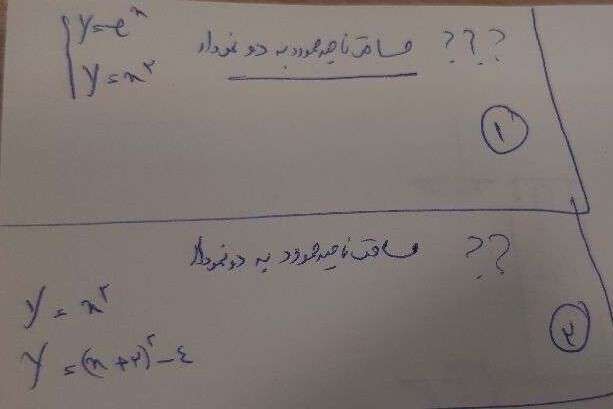 y = e^x
مساحت ناحیه محدود به دو نمودار ؟؟؟
y = x^۲
۱
مساحت ناحیه محدود به دو نمودار ؟؟
y = x^۲
۲
y = (x+۲)^۲ - ٤